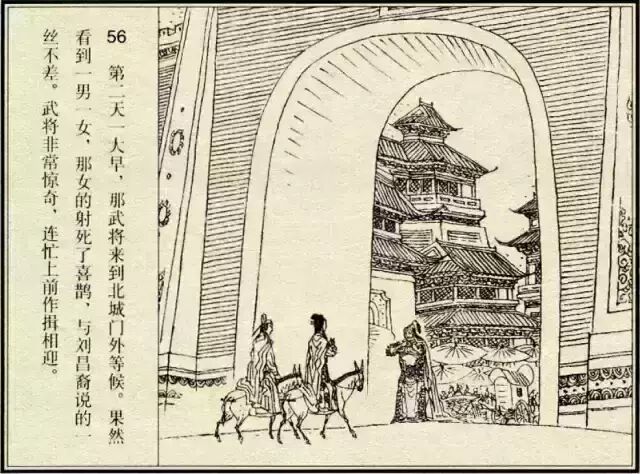 56 第二天一大早，那武将来到北城门外等候。果然
看到一男一女，那女的射死了喜鹊，与刘昌裔说的一
丝不差。武将非常惊奇，连忙上前作揖相迎。